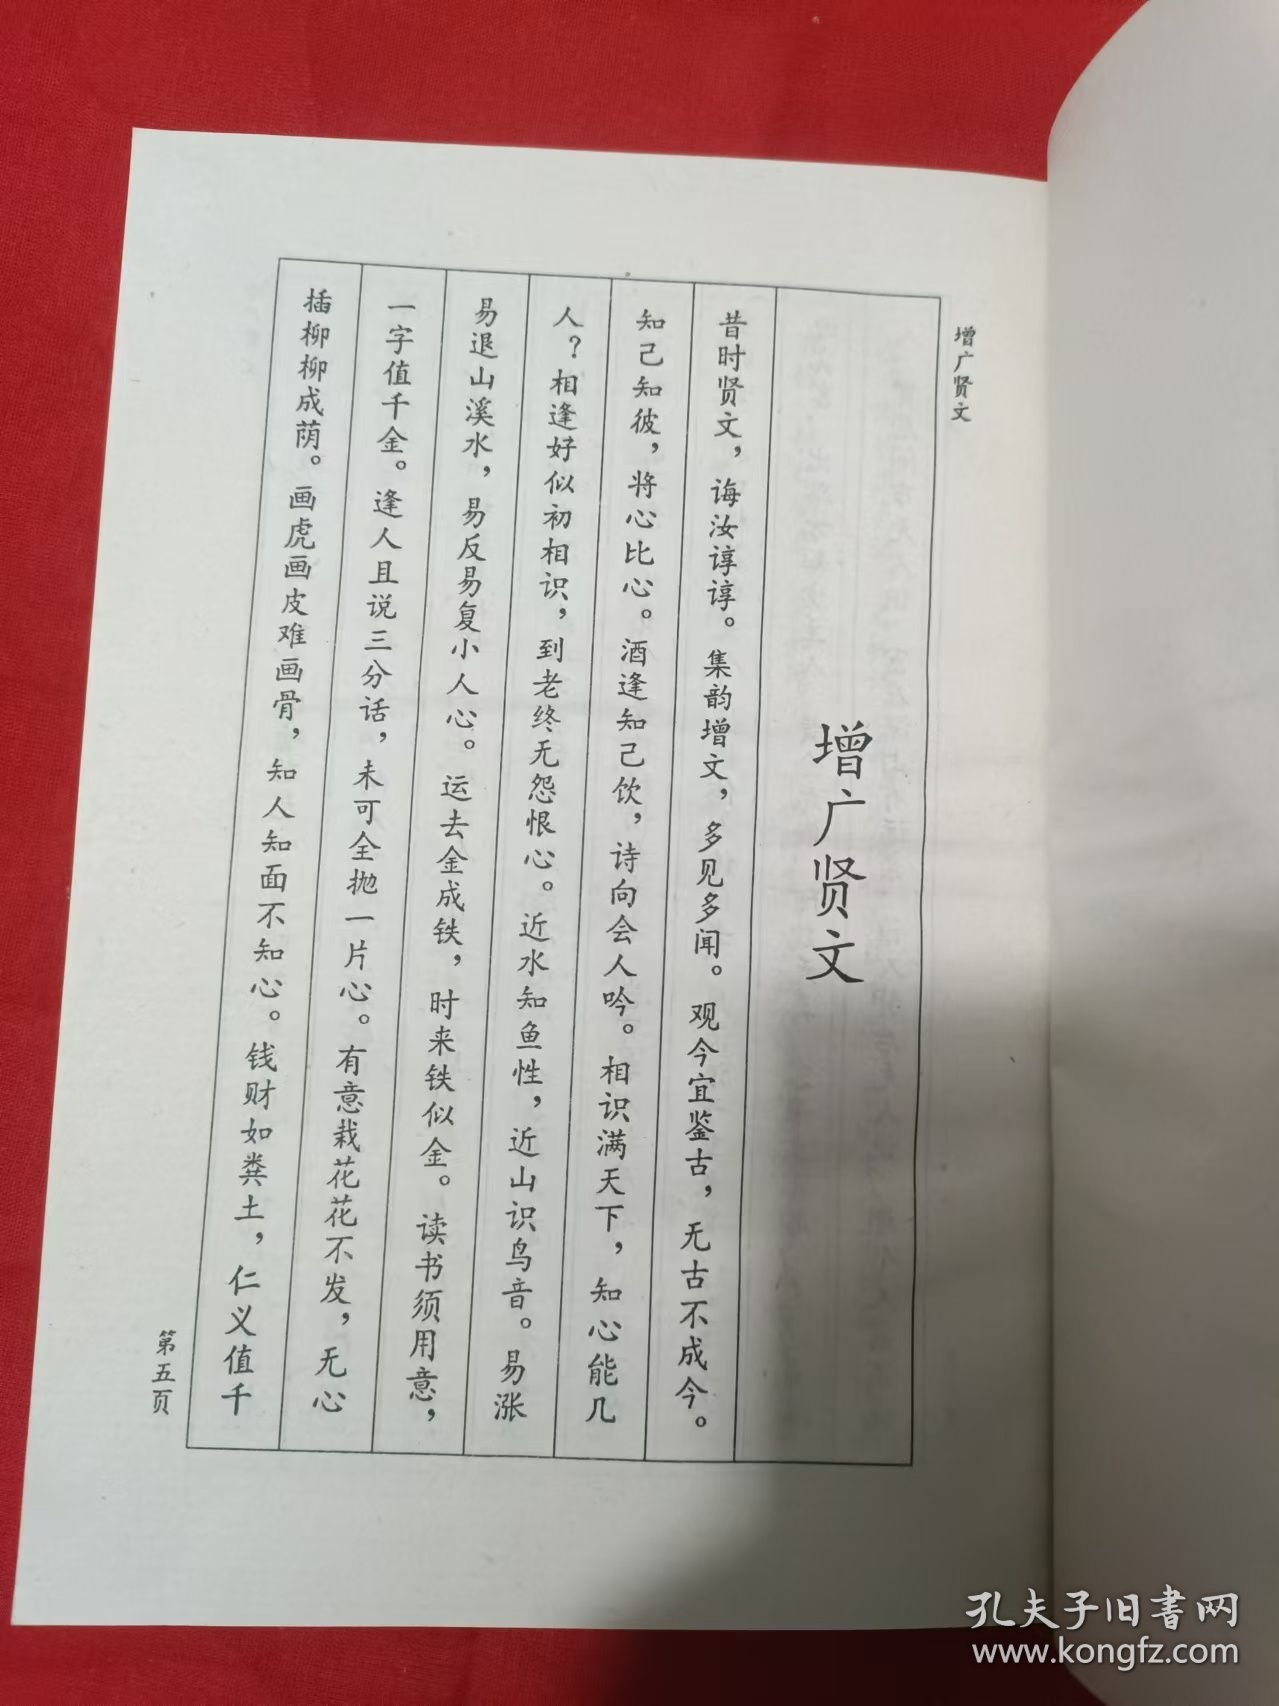 增广贤文
增广贤文
昔时贤文，诲汝谆谆。集韵增文，多见多闻。观今宜鉴古，无古不成今。
知己知彼，将心比心。酒逢知己饮，诗向会人吟。相识满天下，知心能几
人？相逢好似初相识，到老终无怨恨心。近水知鱼性，近山识鸟音。易涨
易退山溪水，易反易复小人心。运去金成铁，时来铁似金。读书须用意，
一字值千金。逢人且说三分话，未可全抛一片心。有意栽花花不发，无心
插柳柳成荫。画虎画皮难画骨，知人知面不知心。钱财如粪土，仁义值千
第五页
孔夫子旧書网
www.kongfz.com